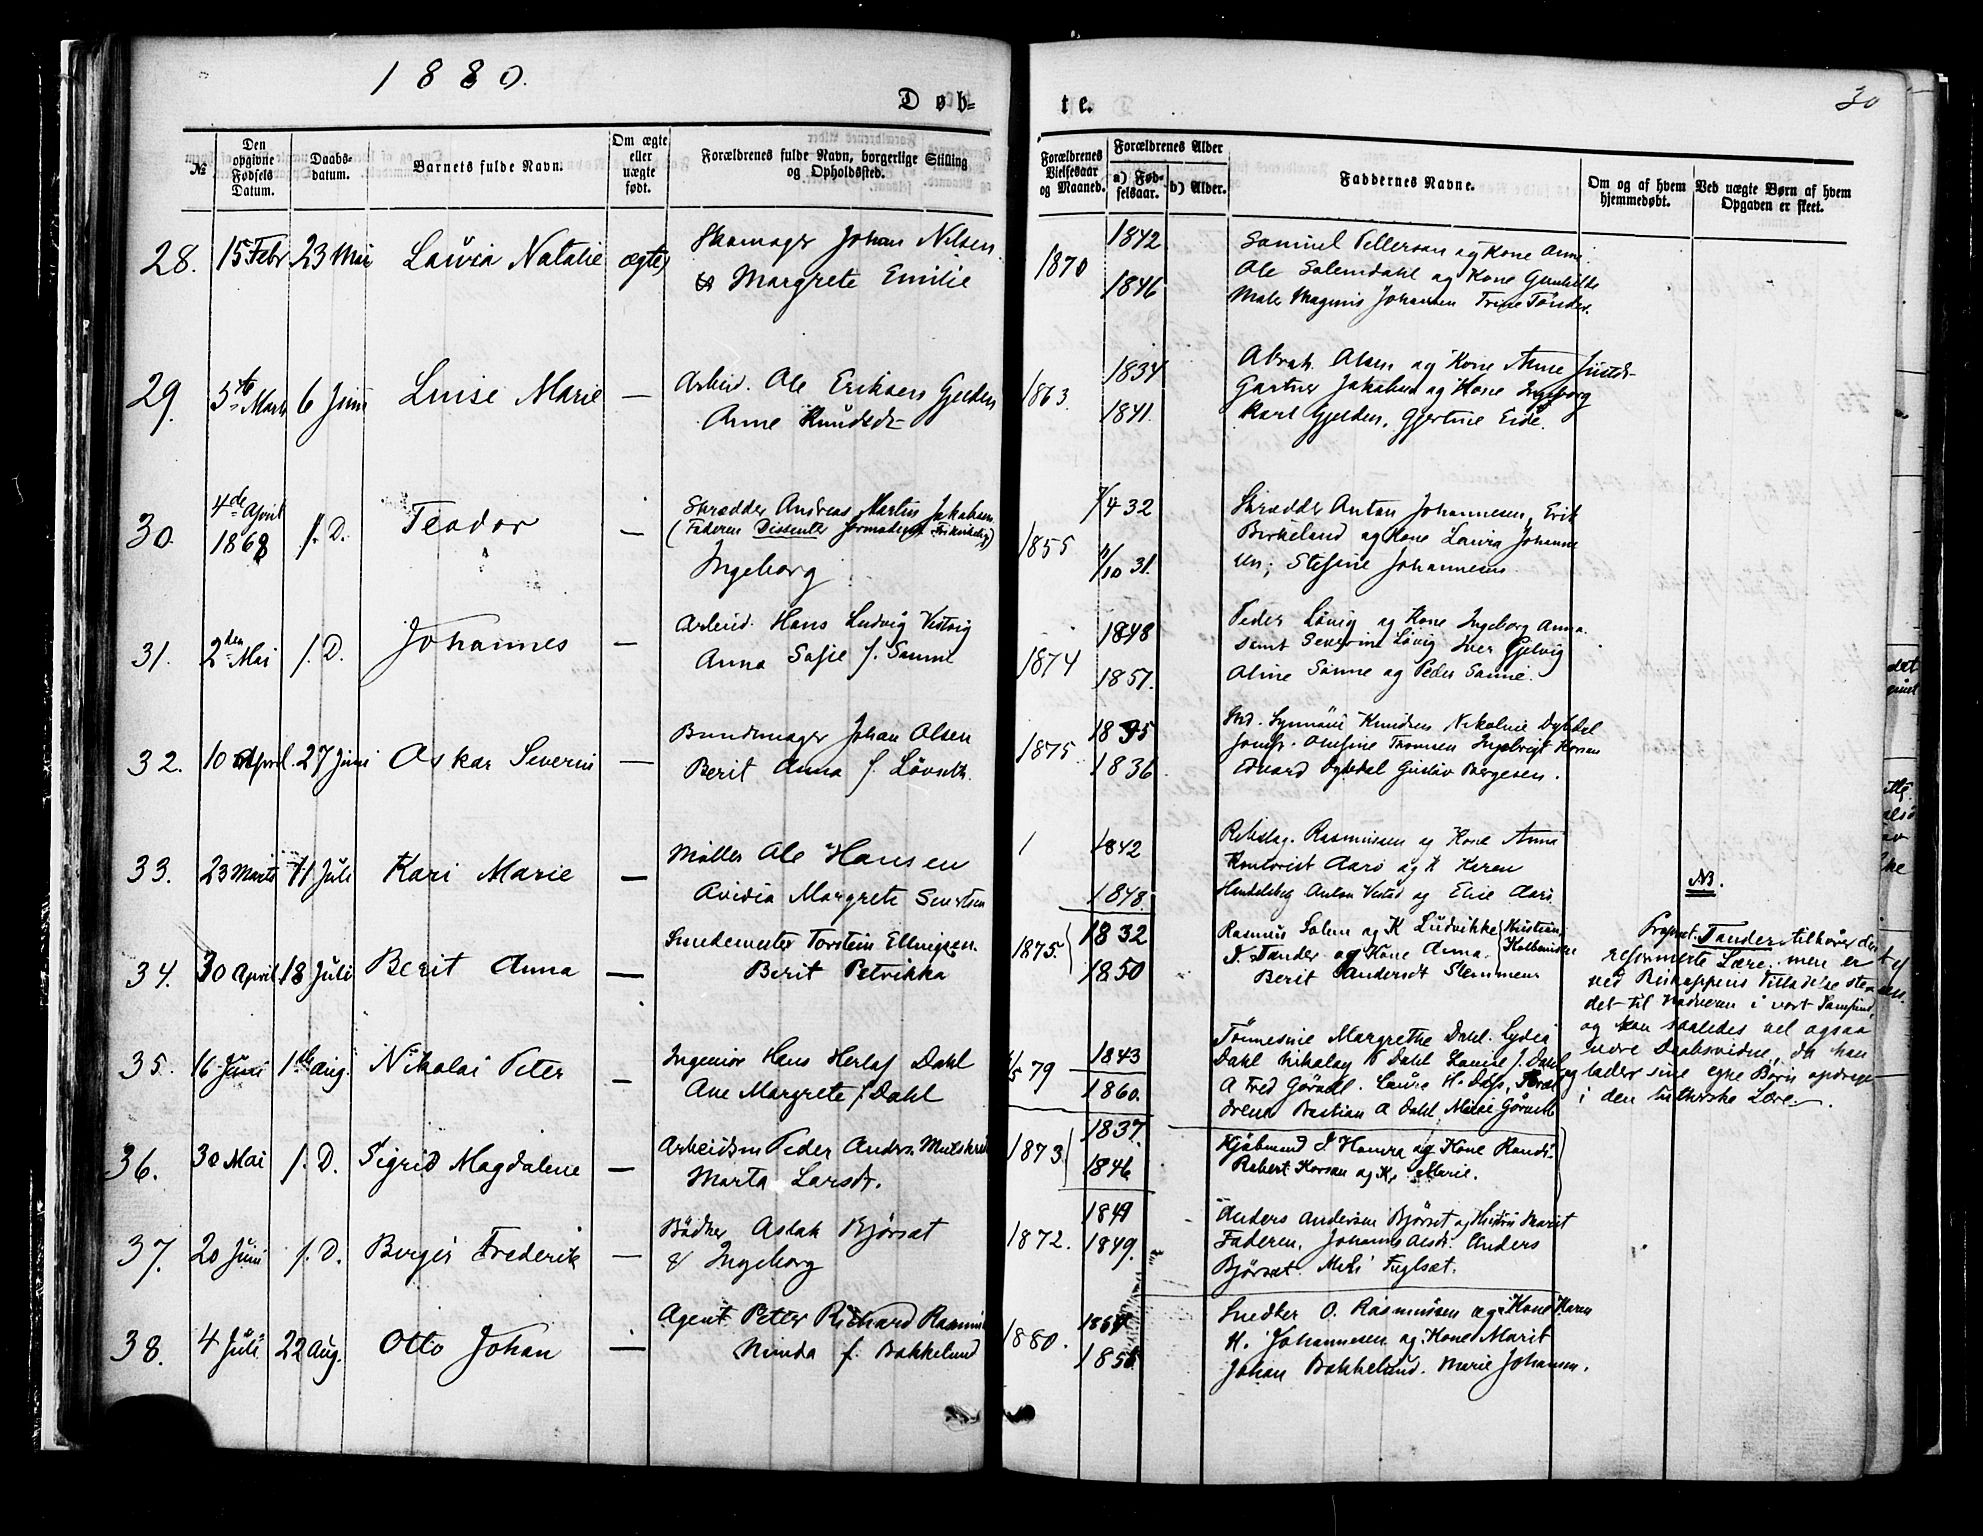 1880.
Døb=
te.
30
№
Den opgivne Fødsels Datum.
Daabs-datum.
Barnets fulde Navn.
Om ægte eller uægte født.
Forældrenes fulde Navn, borgerlige Stilling og Opholdssted.
Forældrenes Vielsesaar og Maaned.
Forældrenes Alder
a) Fødselsaar.
b) Alder.
Faddernes Navne.
Om og af hvem hjemmedøbt.
Ved uægte Børn af hvem Opgaven er skeet.
28. 15 Febr 23 Mai Laura Natalie ægte
Skomager Johan Nilsen
& Margrete Emilie
1870
1842
1846
Samuel Pettersen og Kone Anne
Ole Solemdahl og Kone Gunhilde
Maler Magnus Johansen Trine Tønder.
29. 5te Marts 6 Juni Luise Marie —
Arbeid. Ole Eriksen Gjelden
Anne Knudsdt
1863.
1834
1841.
Abrah. Olsen og Kone Anne
Gartner Jakobsen og Kone Ingeborg
Karl Gjelden, Gjertine Eide.
30. 4de April 1868 s. D. Teodor —
Skrædder Andreas Martin Jakobsen
(Faderen Dissenter formedelst Frikirkelig)
Ingeborg
1855
7/4 32
11/10 31.
Skrædder Anton Johannesen, Erik
Birkeland og Kone Laura Johanne
Un; Stefine Johannesen.
31. 2den Mai s. D. Johannes —
Arbeid. Hans Ludvig Vestvig
Anna Sofie f. Sanne
1874
1848
1851.
Peder Løvig og Kone Ingeborg Anna.
samt Severine Løvig Iver Gjelvig
Aline Sanne og Peder Sanne.
32. 10 April. 27 Juni Oskar Severin —
Bundtmager Johan Olsen
Berit Anna f. Løvseth.
1875.
1836
Knudsen Nikoline Dybdal
Jomfr. Olefine Thomsen Ingebrigt Korsan
Edvard Dybdal Gustav Bergesen.
33. 23 Marts 11 Juli Kari Marie —
Møller Ole Hansen
Ovidia Margrete Sivertsen
1842
1848.
Rebslag. Rasmussen og Kone Anna
Kontorist Aarø og K Karen
Handelsbg Anton Vestad og Elise Aarø.
34. 30 April 18 Juli Berit Anna —
Smedemester Torstein Ellingsen.
Berit Petrikka
1875.
1832
1850
Rasmus Solem og K Ludvikke
Tander og Kone Anna.
Kristian
Berit Andersdt Stemmem
NB.
Tander tilhører den
reformerte Lære, men er
ved Biskoppens Tilladelse ste-
det til Nadveren i vort Samfund,
og kan saaledes vel ogsaa
være Daabsvidne, da han
og lader sine egne Børn opdrage
i den lutherske Lære.
35. 16 Juni 1ste Aug. Nikolai Peter —
Ingeniør Hans Herlof Dahl
Ane Margrete f. Dahl
/5 79
1843
1860.
Tønnesine Margrethe Dahl. Lydia
Dahl Nikolay H Dahl Louise f. Dahl
A Fred Gørvell. Laura H. Dahl,
Bastian A Dahl
36. 30 Mai s. D. Sigrid Magdalene —
Arbeidsm Peder Anders
Marta Larsdt.
1873
1837.
1846
Hjøbmund J. Homra og Kone Randi.
Robert Korsan og K, Marie.
37. 20 Juni s. D. Birger Frederik —
Bødker Aslak Bjørset
& Ingeborg
1872.
1849.
Anders Andersen Bjørset og Hustru Marit
Faderen, Anders
Bjørset. Fuglset.
38. 4 Juli 22 Aug. Otto Johan —
Agent Peter Richard Rasmus
f. Bakkelund
1880.
Snedker O. Rasmussen og Kone Karen
H. Johannesen og Kone Marit
Johan Bakkelund. Marie Johansen.